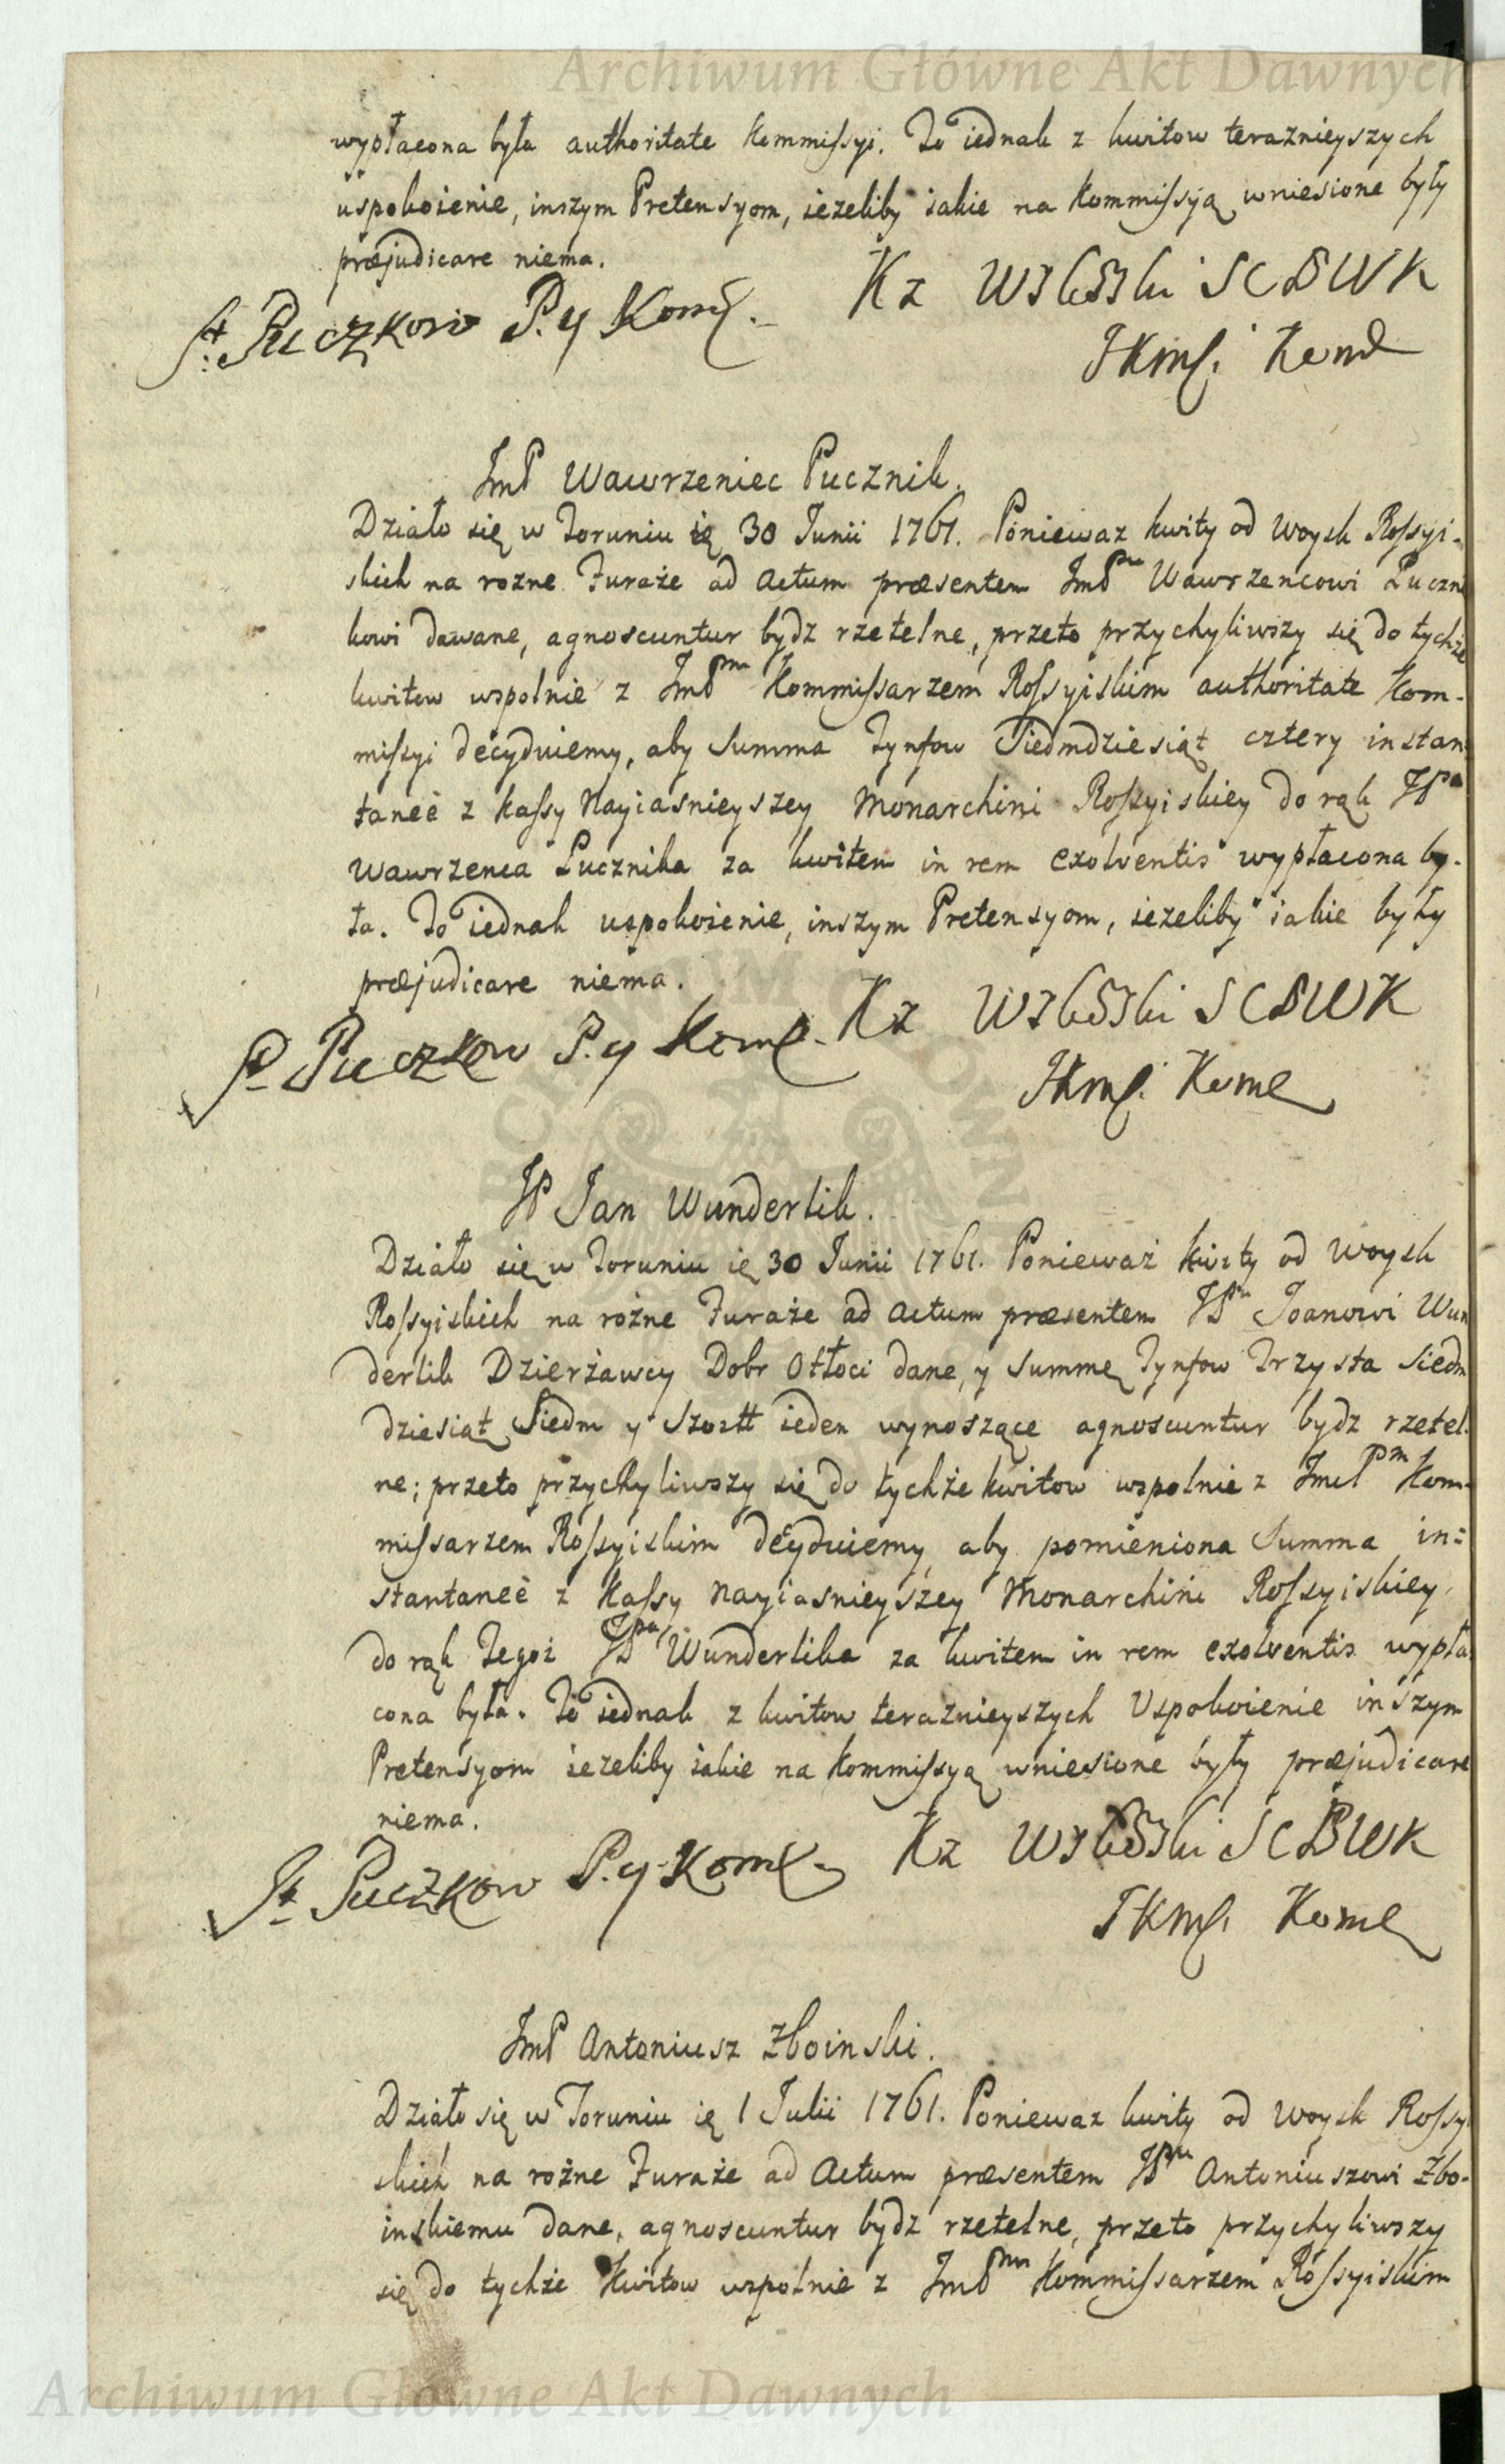 Archiwum Główne Akt Dawnych
wypłacona była authoritate Kommissyi. To iednak z kwitow teraznieyszych
uspokoienie, inszym Pretensyom, iezeliby iakie na Kommissyą wniesione były
præjudicare niema.
Kz SCBWK
St: Puczkow P. y Kom
JKMsi Kom
JmP Wawrzeniec Pucznik.
Działo się w Toruniu ię 30 Junii 1761. Poniewaz kwity od Woysk Rossyi-
skich na rozne Furaże ad Actum præsentem JmP Wawrzencowi Puczni
kowi dawane, agnoscuntur bydz rzetelne, przeto przychyliwszy się do tychże
kwitow wspolnie z JmP Kommissarzem Rossyiskim authoritate Kom-
missyi decyduiemy, aby Summa Tynfow Siedmdziesiąt cztery instan
taneè z Kassy Nayiasnieyszey Monarchini Rossyiskiey do rąk JP
Wawrzenca Pucznika za kwitem in rem exolventis wypłacona by-
ła. To iednak uspokoienie, inszym Pretensyom, iezeliby iakie były
præjudicare niema.
Kz SCBWK
St Puczkow P. y Kom
JKMsi Kom
JP Jan Wunderlik.
Działo się w Toruniu ię 30 Junii 1761. Ponieważ kwity od Woysk
Rossyiskich na rożne Furaże ad Actum præsentem JP Joanowi Wun
derlik Dzierżawcy Dobr Otłoci dane, y Summę Tynfow Trzysta Siedm
dziesiąt Siedm y Szostt ieden wynoszące agnoscuntur bydz rzetel-
ne; przeto przychyliwszy się do tychże kwitow wspolnie z JmcP Kom-
missarzem Rossyiskim decyduiemy aby pomieniona Summa in=
stantaneè z Kassy Nayiasnieyszey Monarchini Rossyiskiey
do rąk Tegoż JP Wunderlika za kwitem in rem exolventis wypła-
cona była. To iednak z kwitow teraznieyszych Uspokoienie inszym
Pretensyom iezeliby iakie na Kommissyą wniesione były præjudicare
niema.
Kz SCBWK
St Puczkow P. y Kom
JKMsi Kom
JmP Antoniusz Zboinski.
Działo się w Toruniu ię 1 Julii 1761. Poniewaz kwity od Woysk Rossyi
skich na rożne Furaże ad Actum præsentem JP Antoniuszowi Zbo-
inskiemu dane, agnoscuntur bydz rzetelne, przeto przychyliwszy
się do tychże Kwitow wspolnie z JmP Kommissarzem Rossyiskim
Archiwum Główne Akt Dawnych